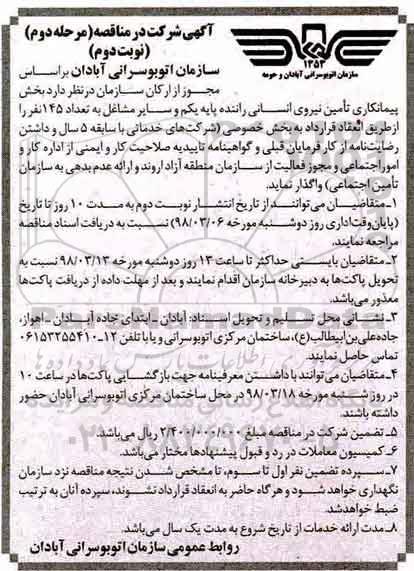 آگهی شرکت در مناقصه (مرحله دوم)
(نوبت دوم)
۱۳۵۳
سازمان اتوبوسرانی آبادان و حومه
سازمان اتوبوسرانی آبادان براساس
مجوز از ارکان سازمان در نظر دارد بخش
پیمانکاری تأمین نیروی انسانی راننده پایه یکم و سایر مشاغل به تعداد ۱۴۵ نفر را
از طریق انعقاد قرارداد به بخش خصوصی (شرکت‌های خدماتی با سابقه ۵ سال و داشتن
رضایت‌نامه از کار فرمایان قبلی و گواهینامه تاییدیه صلاحیت کار و ایمنی از اداره کار و
امور اجتماعی و مجوز فعالیت از سازمان منطقه آزاد اروند و ارائه عدم بدهی به سازمان
تأمین اجتماعی) واگذار نماید.
۱ـ متقاضیان می‌توانند از تاریخ انتشار نوبت دوم به مدت ۱۰ روز تا تاریخ
(پایان وقت اداری روز دوشنبه مورخه ۹۸/۰۳/۰۶) نسبت به دریافت اسناد مناقصه
مراجعه نمایند.
۲ـ متقاضیان بایستی حداکثر تا ساعت ۱۳ روز دوشنبه مورخه ۹۸/۰۳/۱۳ نسبت به
تحویل پاکت‌ها به دبیرخانه سازمان اقدام نمایند و بعد از مهلت داده از دریافت پاکت‌ها
معذور می‌باشد.
۳ـ نشانی محل تسلیم و تحویل اسناد: آبادان ـ ابتدای جاده آبادان ـ اهواز،
جاده علی‌بن‌ابیطالب(ع)، ساختمان مرکزی اتوبوسرانی و یا با تلفن ۱۲ـ۰۶۱۵۳۲۵۵۴۱۰
تماس حاصل نمایند.
۴ـ متقاضیان می‌توانند با داشتن معرفینامه جهت بازگشایی پاکت‌ها در ساعت ۱۰
در روز شنبه مورخه ۹۸/۰۳/۱۸ در محل ساختمان مرکزی اتوبوسرانی آبادان حضور
داشته باشند.
۵ـ تضمین شرکت در مناقصه مبلغ ۲/۴۰۰/۰۰۰/۰۰۰ ریال می‌باشد.
۶ـ کمیسیون معاملات در رد و قبول پیشنهادها مختار می‌باشد.
۷ـ سپرده تضمین نفر اول تا سوم، تا مشخص شدن نتیجه مناقصه نزد سازمان
نگهداری خواهد شود و هرگاه حاضر به انعقاد قرارداد نشوند، سپرده آنان به ترتیب
ضبط خواهد شد.
۸ـ مدت ارائه خدمات از تاریخ شروع به مدت یک سال می‌باشد.
روابط عمومی سازمان اتوبوسرانی آبادان